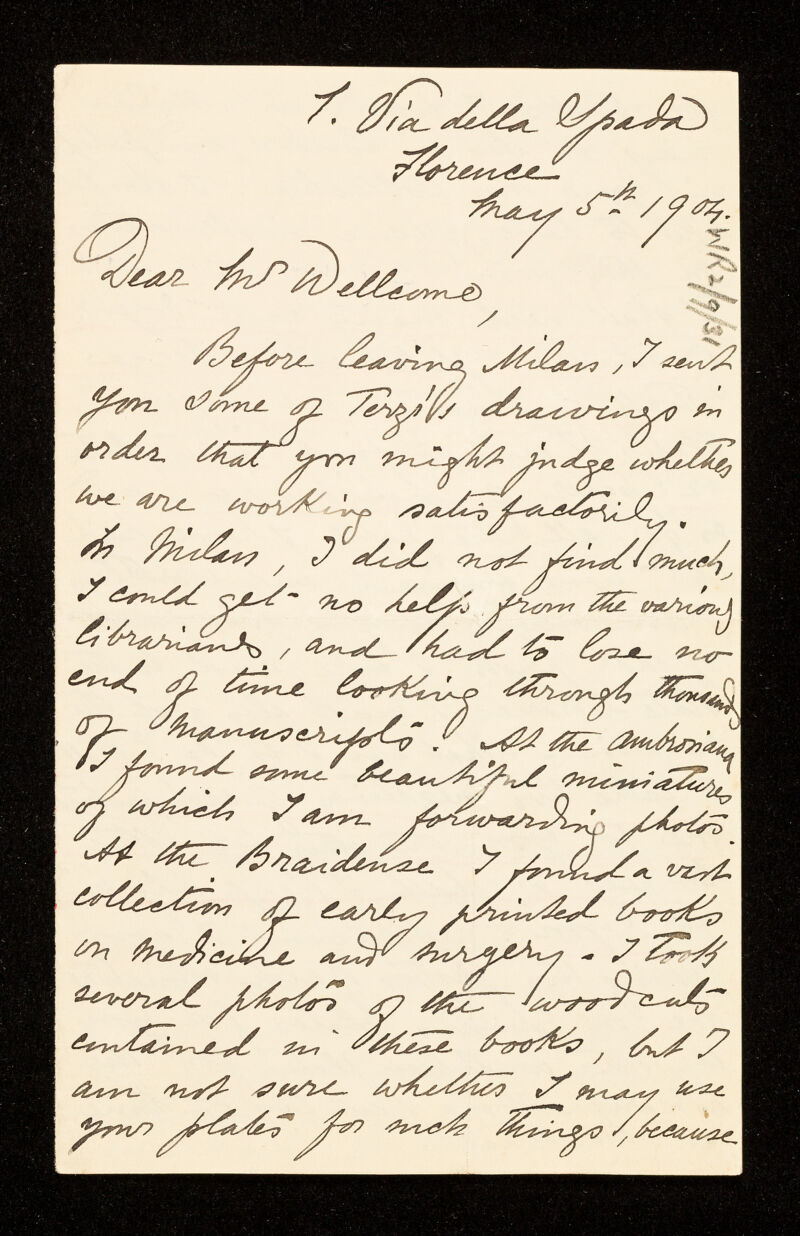 1. Via della Spada
Florence
May 5th 1904.
WR2/9/31
Dear Mr Wellcome,
Before leaving Milan, I sent
you some of Terzi's drawings in
order that you might judge whether
we are working satisfactorily.
In Milan, I did not find much,
I could get no help from the various
librarians, and had to lose no
end of time looking through thousands
of manuscripts. At the Ambrosiana
I found some beautiful miniatures
of which I am forwarding photos.
At the Braidense I found a vast
collection of early printed books
on medicine and surgery - I took
several photos of the woodcuts
contained in these books, but I
am not sure whether I may use
your plates for such things, because